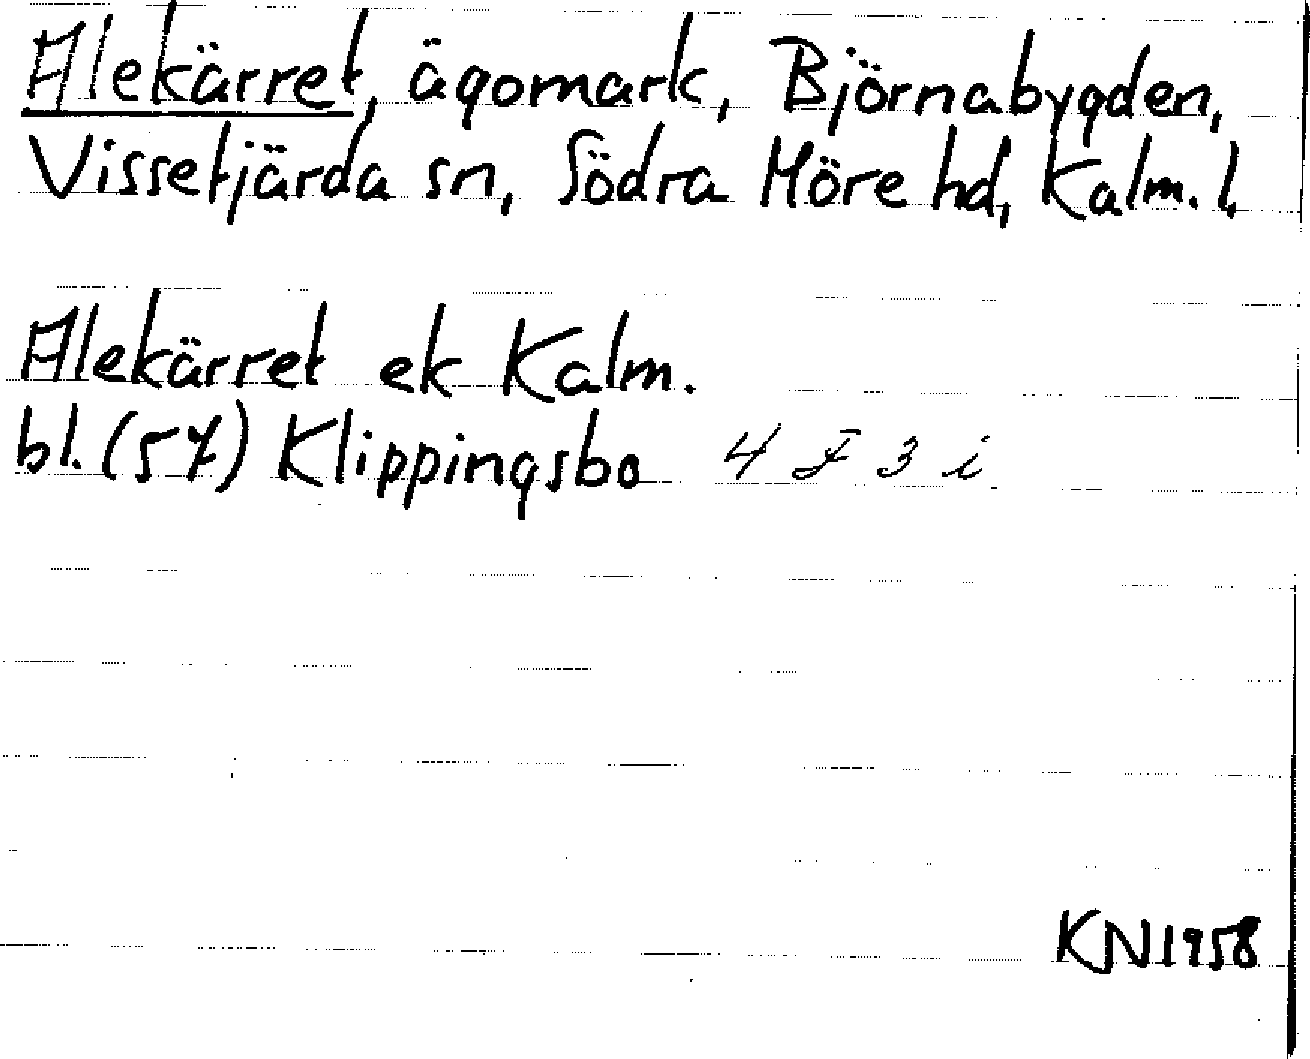 Alekärret, ägomark, Björnabygden,
Vissefjärda sn, Södra Möre hd, Kalm. l.
Alekärret ek Kalm.
bl. (57) Klippingsbo 4 F 3 i
KN1958